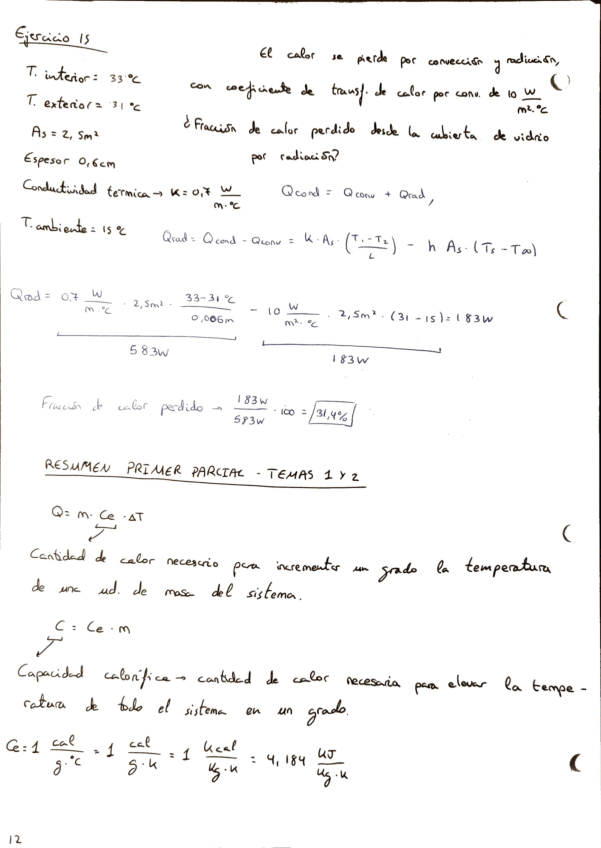 Ejercicio 15
T. interior = 33 ºC
T. exterior = 31 ºC
As = 2,5m²
Espesor 0,6cm
Conductividad térmica → K = 0,7 W/m·ºC
T. ambiente = 15 ºC
El calor se pierde por convección y radiación,
con coeficiente de transf. de calor por conv. de 10 W/m²·ºC
¿Fracción de calor perdido desde la cubierta de vidrio
por radiación?
Qcond = Qconv + Qrad,
Qrad = Qcond - Qconv = K · As · (T₁-T₂/L) - h As · (Ts - T∞)
Qrad = 0,7 W/m·ºC · 2,5m² · 33-31 ºC/0,006m - 10 W/m²·ºC · 2,5m² · (31 - 15) = 183W
583W
183W
Fracción de calor perdido → 183W/583W · 100 = 31,4%
RESUMEN PRIMER PARCIAL - TEMAS 1 Y 2
Q = m · Ce · ΔT
Cantidad de calor necesario para incrementar un grado la temperatura
de una ud. de masa del sistema.
C = Ce · m
Capacidad calorífica → cantidad de calor necesaria para elevar la tempe-
ratura de todo el sistema en un grado.
Ce = 1 cal/g·ºC = 1 cal/g·K = 1 Kcal/Kg·K = 4,184 KJ/Kg·K
12